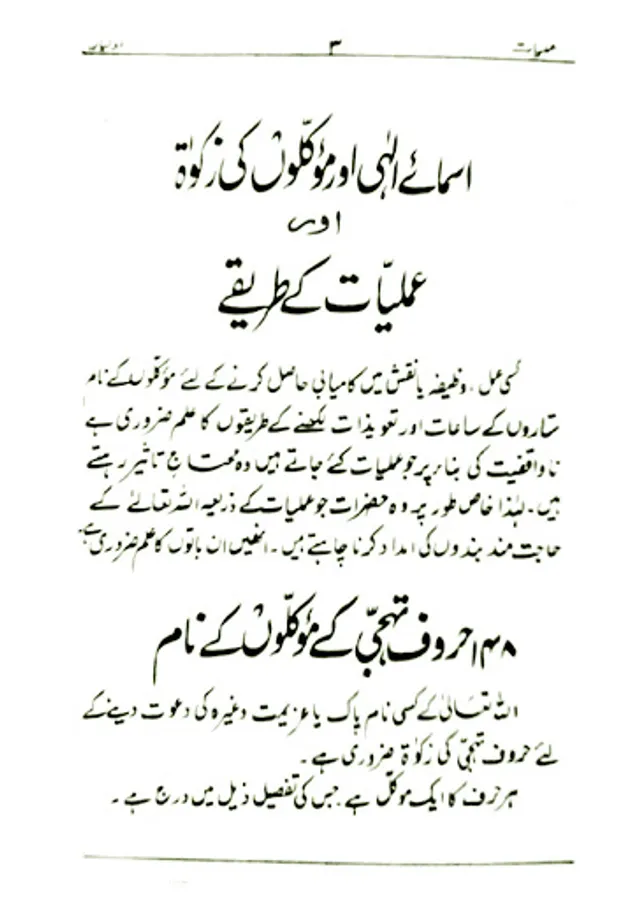 عملیات ۳ اولیاء
اسمائے الٰہی اور مؤکلوں کی زکوٰۃ
اور
عملیّات کے طریقے
کسی عمل، وظیفہ یا نقش میں کامیابی حاصل کرنے کے لئے مؤکلوں کے نام
ستاروں کے ساعات اور تعویذات لکھنے کے طریقوں کا علم ضروری ہے
ناواقفیت کی بناء پر جو عملیات کئے جاتے ہیں وہ محتاج تاثیر رہتے
ہیں۔ لہٰذا خاص طور پر وہ حضرات جو عملیات کے ذریعہ اللہ تعالےٰ کے
حاجت مند بندوں کی امداد کرنا چاہتے ہیں۔ انھیں ان باتوں کا علم ضروری ہے۔
۱۴۸ حروف تہجّی کے مؤکلّوں کے نام
اللہ تعالیٰ کے کسی نام پاک یا عزیمت وغیرہ کی دعوت دینے کے
لئے حروف تہجّی کی زکوٰۃ ضروری ہے۔
ہر حرف کا ایک موکلّ ہے جس کی تفصیل ذیل میں درج ہے۔